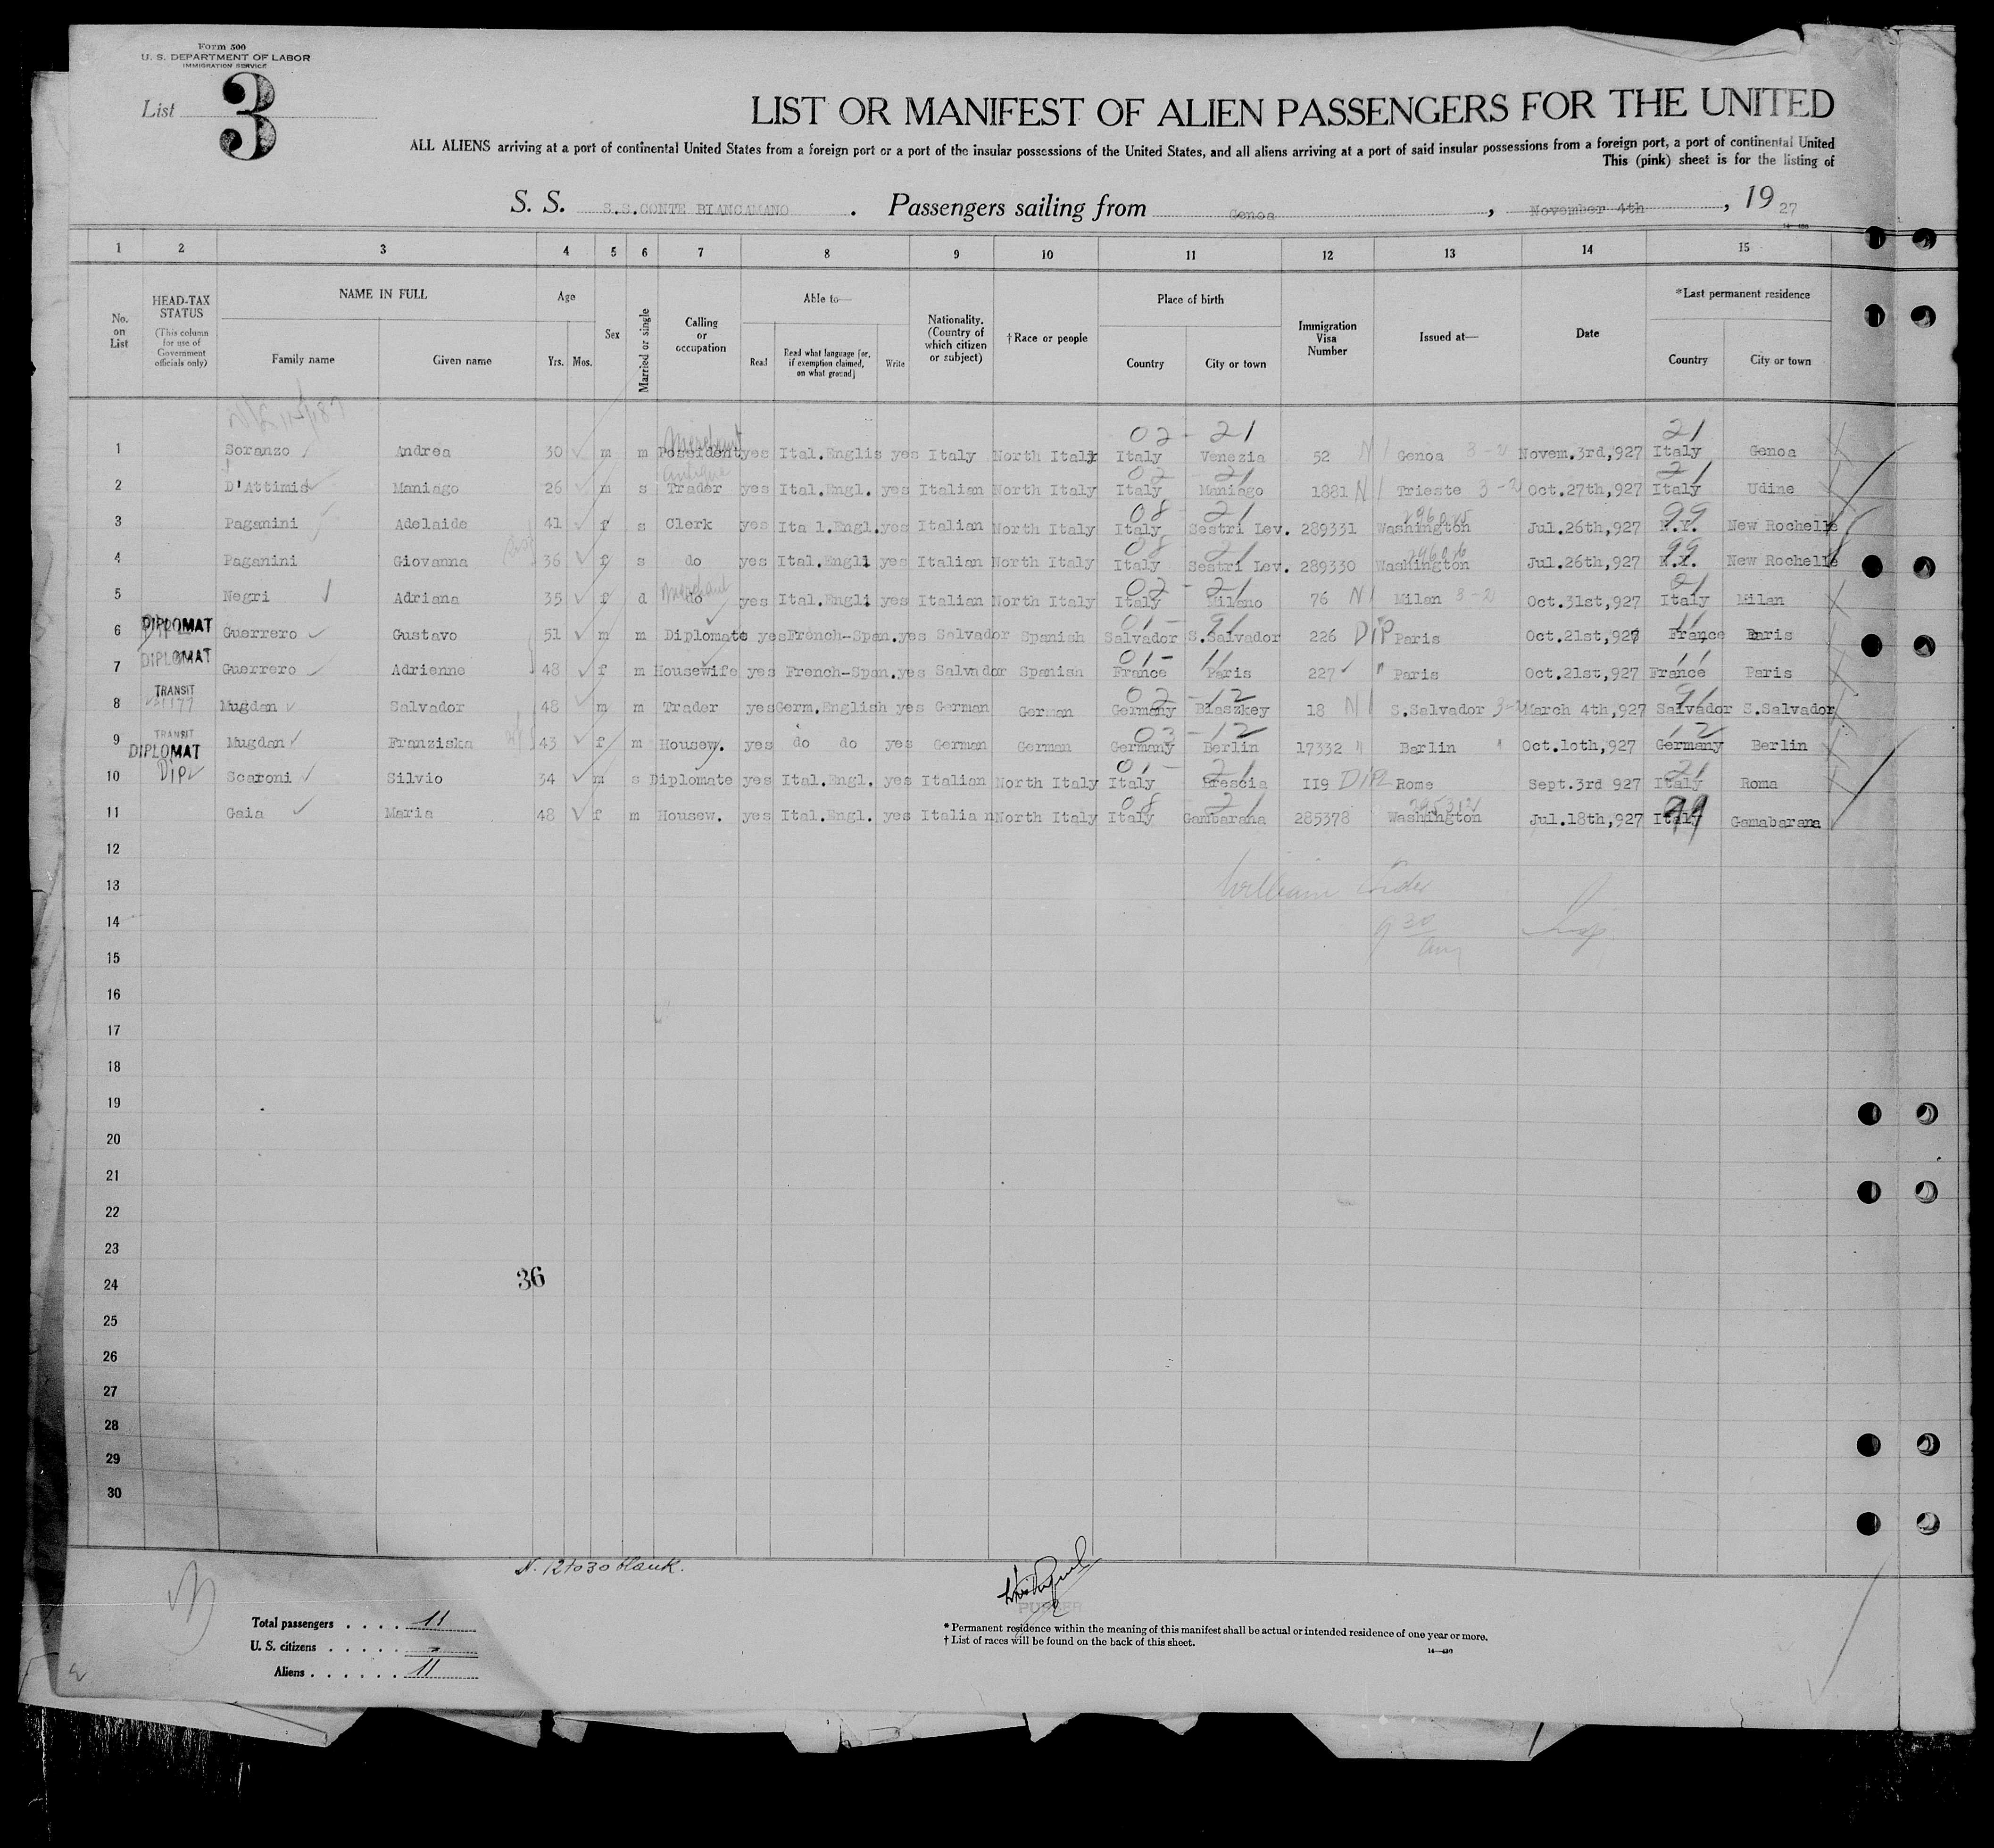 Form 500
U. S. DEPARTMENT OF LABOR
IMMIGRATION SERVICE
List 3
LIST OR MANIFEST OF ALIEN PASSENGERS FOR THE UNITED
ALL ALIENS arriving at a port of continental United States from a foreign port or a port of the insular possessions of the United States, and all aliens arriving at a port of said insular possessions from a foreign port, a port of continental United
This (pink) sheet is for the listing of
S. S. S.S.CONTE BIANCAMANO . Passengers sailing from Genoa , November 4th , 19 27
1 2 3 4 5 6 7 8 9 10 11 12 13 14 15
No. on List
HEAD-TAX STATUS (This column for use of Government officials only)
NAME IN FULL Family name Given name
Age Yrs. Mos.
Sex
Married or single
Calling or occupation
Able to— Read Read what language [or, if exemption claimed, on what ground] Write
Nationality. (Country of which citizen or subject)
†Race or people
Place of birth Country City or town
Immigration Visa Number
Issued at—
Date
*Last permanent residence Country City or town
02 - 21 21
1 Soranzo Andrea 30 m m Possident Merchant yes Ital.Englis yes Italy North Italy Italy Venezia 52 N1 Genoa 3-2 Novem.3rd,927 Italy Genoa
02 - 21 21
2 D'Attimis Maniago 26 m s Antique Trader yes Ital.Engl. yes Italian North Italy Italy Maniago 1881 N1 Trieste 3-2 Oct.27th,927 Italy Udine
08 - 21 99
3 Paganini Adelaide 41 f s Clerk yes Ita l.Engl. yes Italian North Italy Italy Sestri Lev. 289331 Washington Jul.26th,927 N.Y. New Rochelle
08 21 99
4 Paganini Giovanna 36 f s do yes Ital.Engli yes Italian North Italy Italy Sestri Lev. 289330 Washington Jul.26th,927 N.Y. New Rochelle
02 - 21 21
5 Negri Adriana 35 f d do Merchant yes Ital.Engli yes Italian North Italy Italy Milano 76 N1 Milan 3-2 Oct.31st,927 Italy Milan
01 - 91 11
6 DIPLOMAT Guerrero Gustavo 51 m m Diplomate yes French-Span. yes Salvador Spanish Salvador S.Salvador 226 DIP Paris Oct.21st,927 France Paris
01 - 11 11
7 DIPLOMAT Guerrero Adrienne 48 f m Housewife yes French-Span. yes Salvador Spanish France Paris 227 " Paris Oct.21st,927 France Paris
02 - 12 91
8 TRANSIT Mugdan Salvador 48 m m Trader yes Germ.English yes German German Germany Blaszkey 18 N1 S.Salvador 3-2 March 4th,927 Salvador S.Salvador
03 - 12 12
9 TRANSIT Mugdan Franziska 43 f m Housew. yes do do yes German German Germany Berlin 17332 " Berlin " Oct.10th,927 Germany Berlin
01 - 21 21
10 DIPLOMAT DIP Scaroni Silvio 34 m s Diplomate yes Ital.Engl. yes Italian North Italy Italy Brescia II9 DIPL Rome Sept.3rd 927 Italy Roma
08 - 21 99
11 Gaia Maria 48 f m Housew. yes Ital.Engl. yes Italia n North Italy Italy Gambarana 285378 Washington Jul.18th,927 Italy Gamabarana
12
13 William
14 9 30
15
16
17
18
19
20
21
22
23
24 36
25
26
27
28
29
30
N. 12 to 30 blank.
PURSER
Total passengers . . . . 11
U. S. citizens . . . . . -
Aliens . . . . . . 11
* Permanent residence within the meaning of this manifest shall be actual or intended residence of one year or more.
† List of races will be found on the back of this sheet.